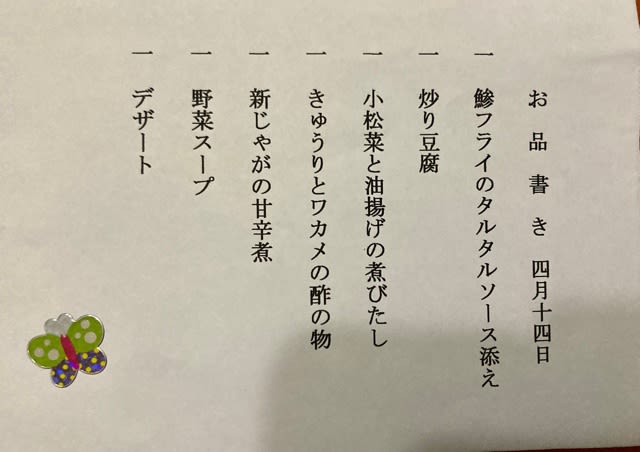 お品書き 四月十四日
一 鯵フライのタルタルソース添え
一 炒り豆腐
一 小松菜と油揚げの煮びたし
一 きゅうりとワカメの酢の物
一 新じゃがの甘辛煮
一 野菜スープ
一 デザート